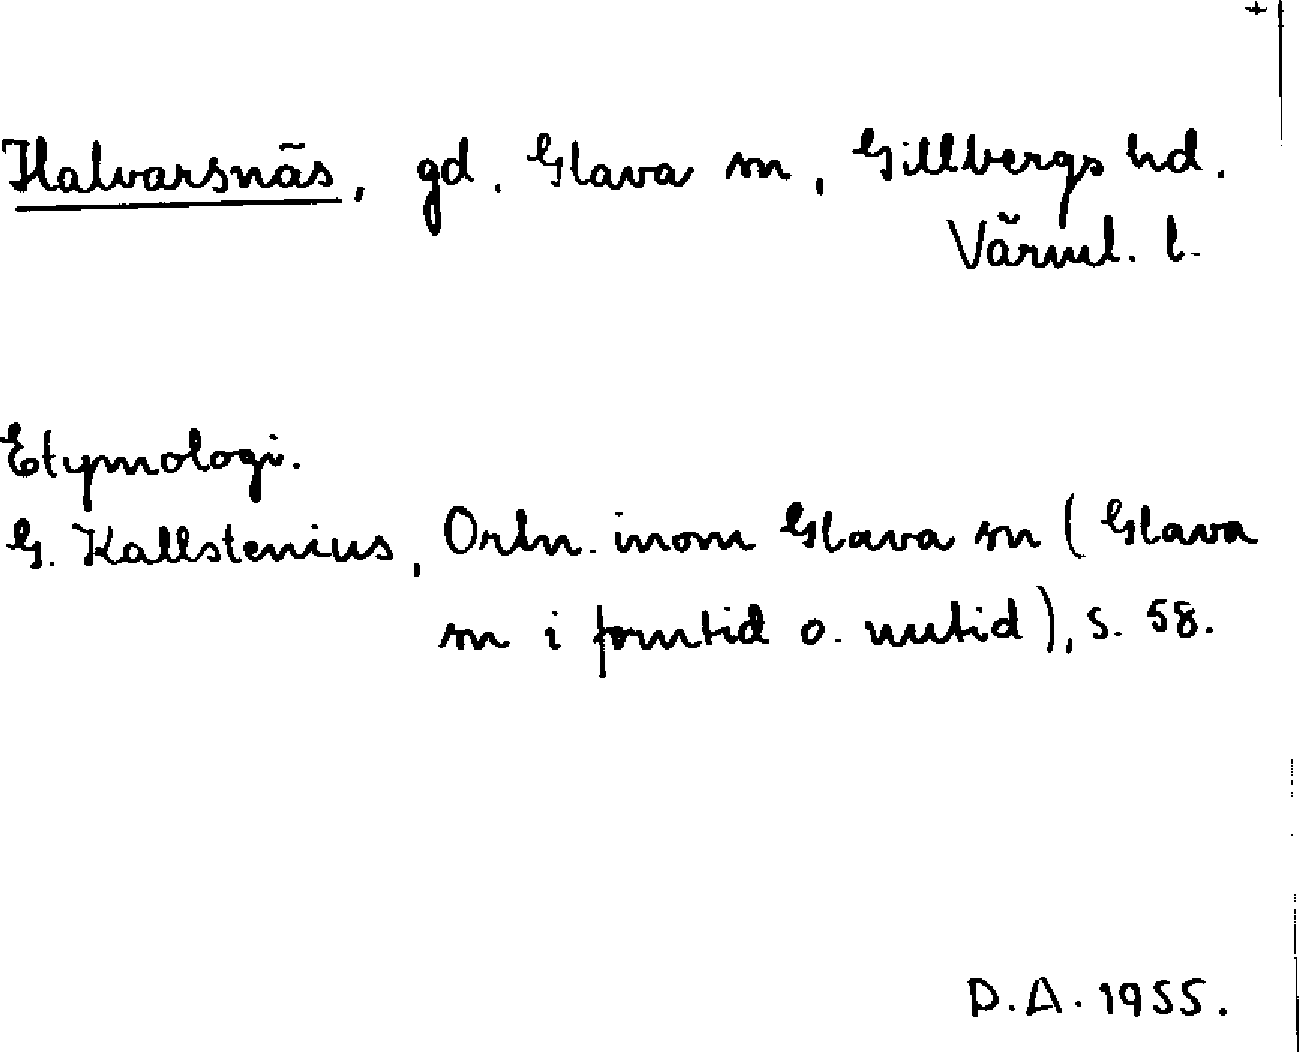 +
Halvarsnäs, gd. Glava sn, Gillbergs hd.
Värml. l.
Etymologi.
G. Kallstenius, Ortn. inom Glava sn (Glava
sn i forntid o. nutid), s. 58.
D.A. 1955.